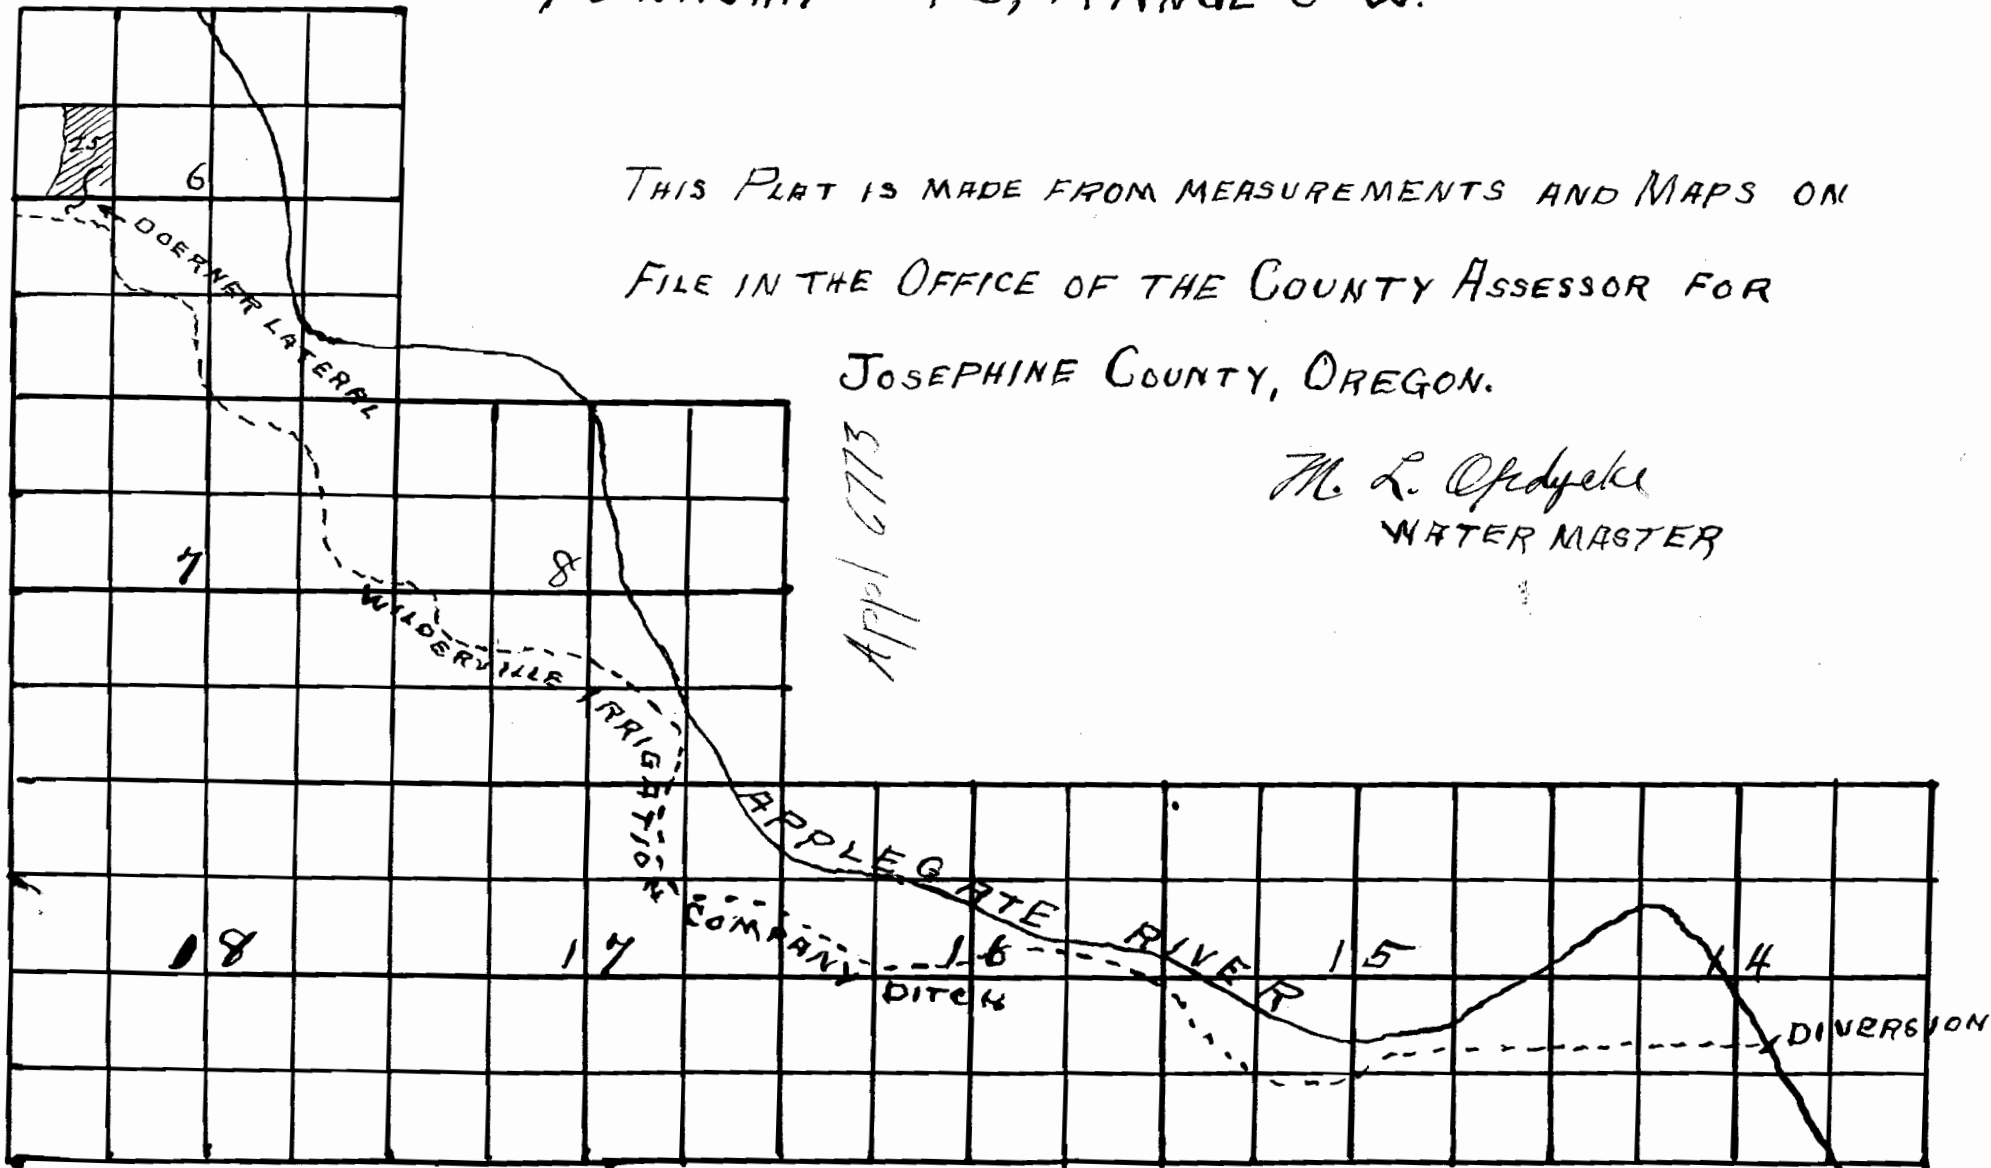 RANGE W.
THIS PLAT IS MADE FROM MEASUREMENTS AND MAPS ON
FILE IN THE OFFICE OF THE COUNTY ASSESSOR FOR
JOSEPHINE COUNTY, OREGON.
M. L. Opdycke
WATER MASTER
Appl 6773
25
6
DOERNER LATERAL
7
8
WILDERVILLE IRRIGATION COMPANY DITCH
APPLEGATE RIVER
18
17
16
15
14
DIVERSION